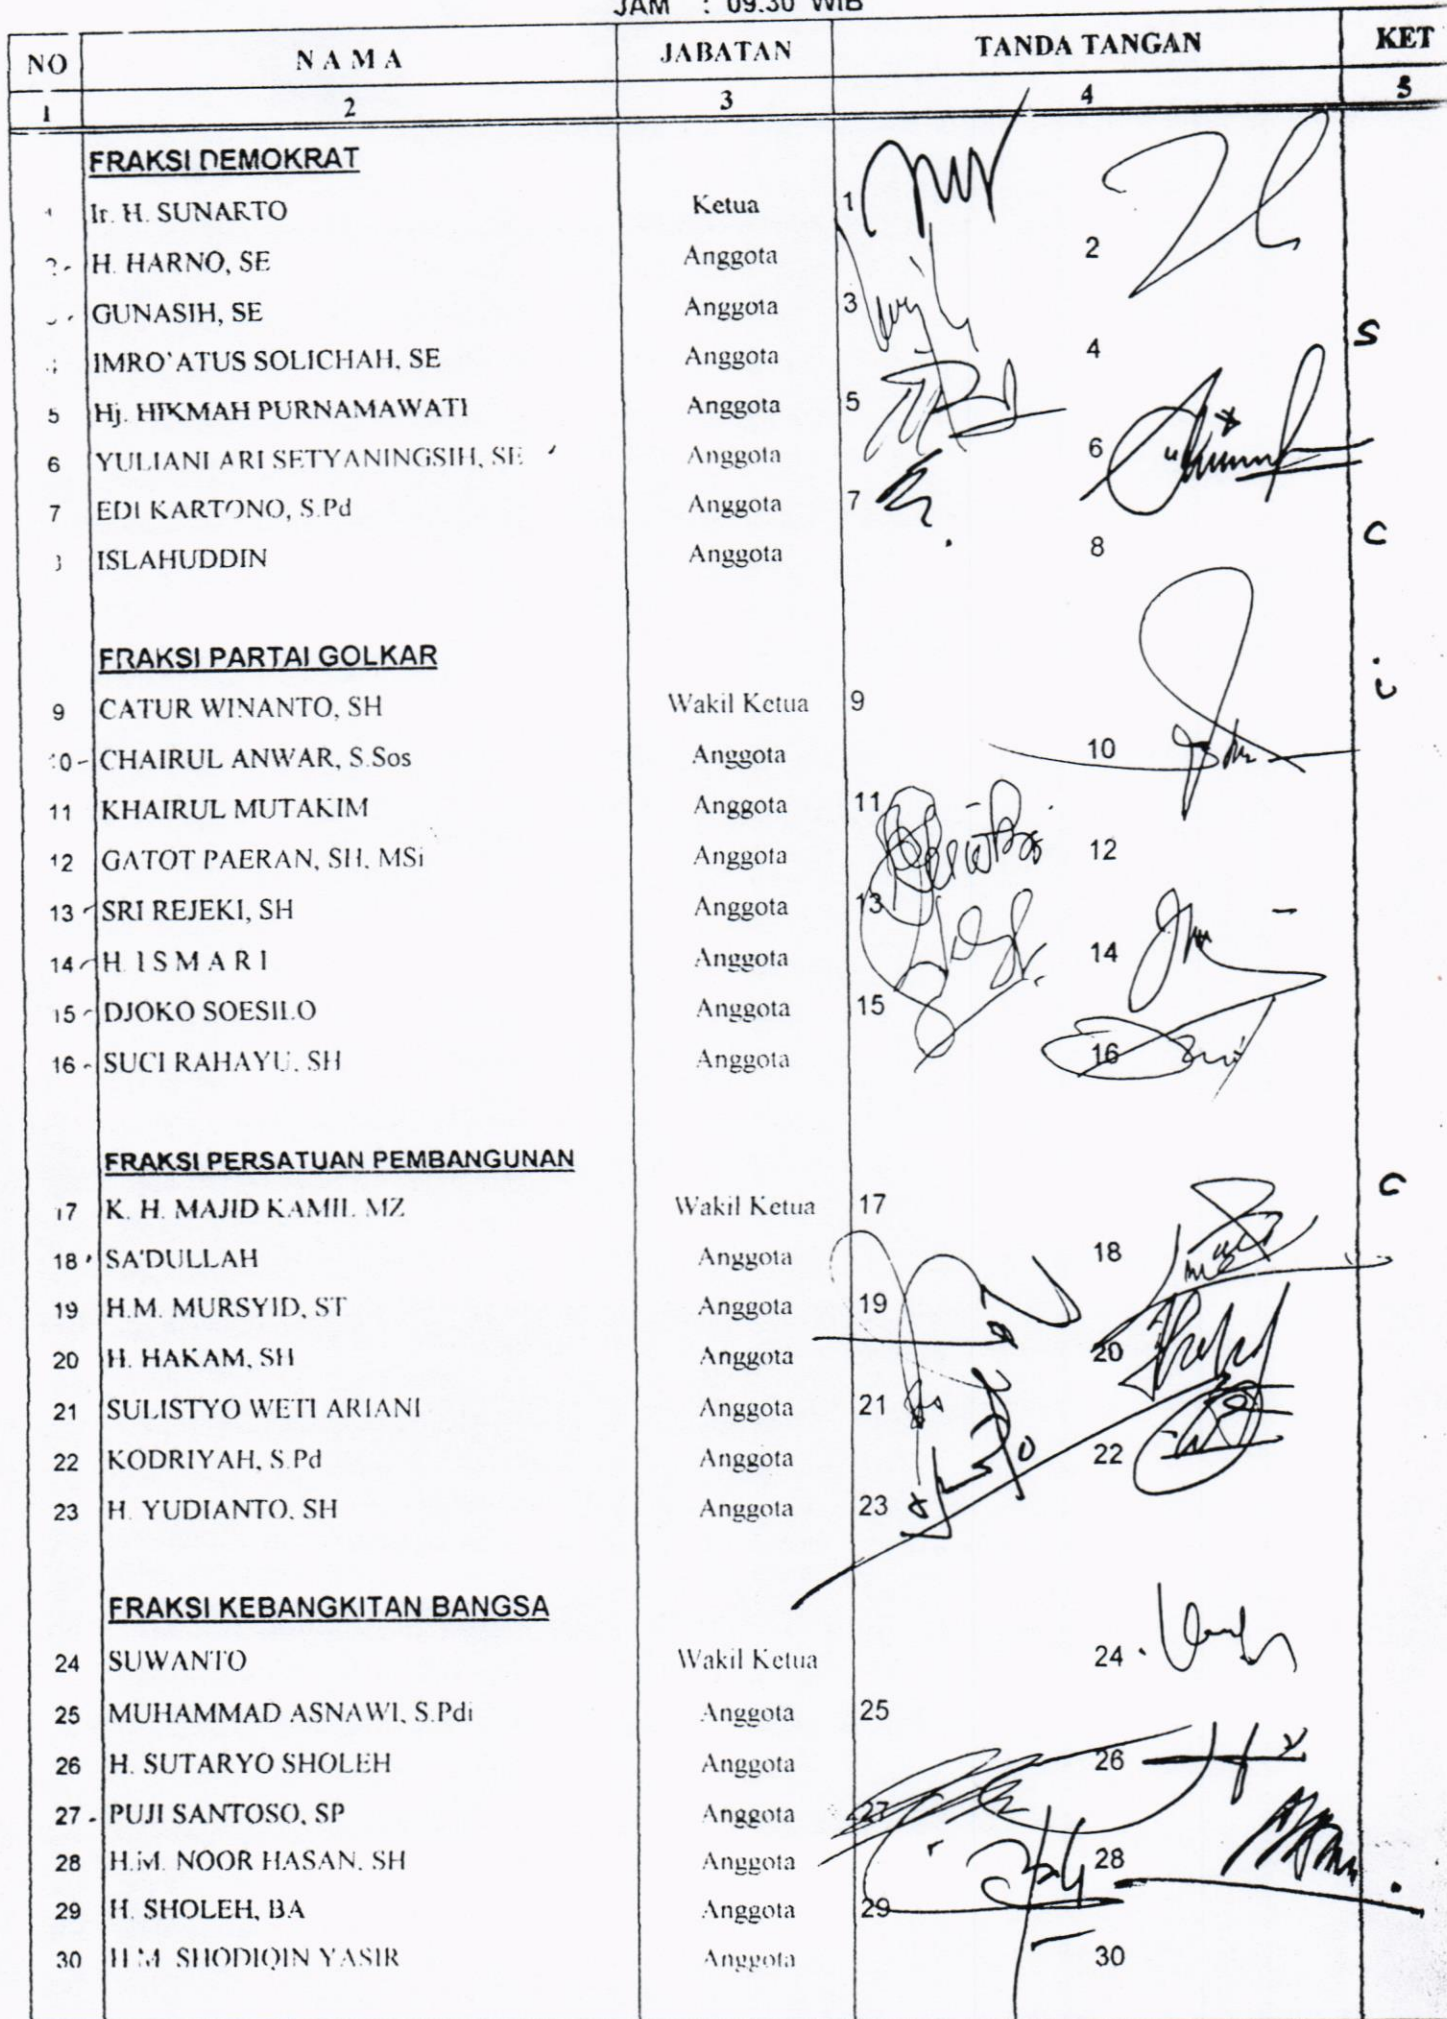 JAM : 09.30 WIB
NO NAMA JABATAN TANDA TANGAN KET
1 2 3 4 5
FRAKSI DEMOKRAT
Ir. H. SUNARTO Ketua 1
H. HARNO, SE Anggota 2
GUNASIH, SE Anggota 3
IMRO'ATUS SOLICHAH, SE Anggota 4 S
5 Hj. HIKMAH PURNAMAWATI Anggota 5
6 YULIANI ARI SETYANINGSIH, SE Anggota 6
7 EDI KARTONO, S.Pd Anggota 7
ISLAHUDDIN Anggota 8 C
FRAKSI PARTAI GOLKAR
9 CATUR WINANTO, SH Wakil Ketua 9 i
10 - CHAIRUL ANWAR, S.Sos Anggota 10
11 KHAIRUL MUTAKIM Anggota 11
12 GATOT PAERAN, SH, MSi Anggota 12
13 SRI REJEKI, SH Anggota 13
14 H. ISMARI Anggota 14
15 DJOKO SOESILO Anggota 15
16 - SUCI RAHAYU, SH Anggota 16
FRAKSI PERSATUAN PEMBANGUNAN
17 K. H. MAJID KAMIL MZ Wakil Ketua 17 C
18 SA'DULLAH Anggota 18
19 H.M. MURSYID, ST Anggota 19
20 H. HAKAM, SH Anggota 20
21 SULISTYO WETI ARIANI Anggota 21
22 KODRIYAH, S.Pd Anggota 22
23 H. YUDIANTO, SH Anggota 23
FRAKSI KEBANGKITAN BANGSA
24 SUWANTO Wakil Ketua 24
25 MUHAMMAD ASNAWI, S.Pdi Anggota 25
26 H. SUTARYO SHOLEH Anggota 26
27 - PUJI SANTOSO, SP Anggota 27
28 H.M. NOOR HASAN, SH Anggota 28
29 H. SHOLEH, BA Anggota 29
30 H.M. SHODIQIN YASIR Anggota 30